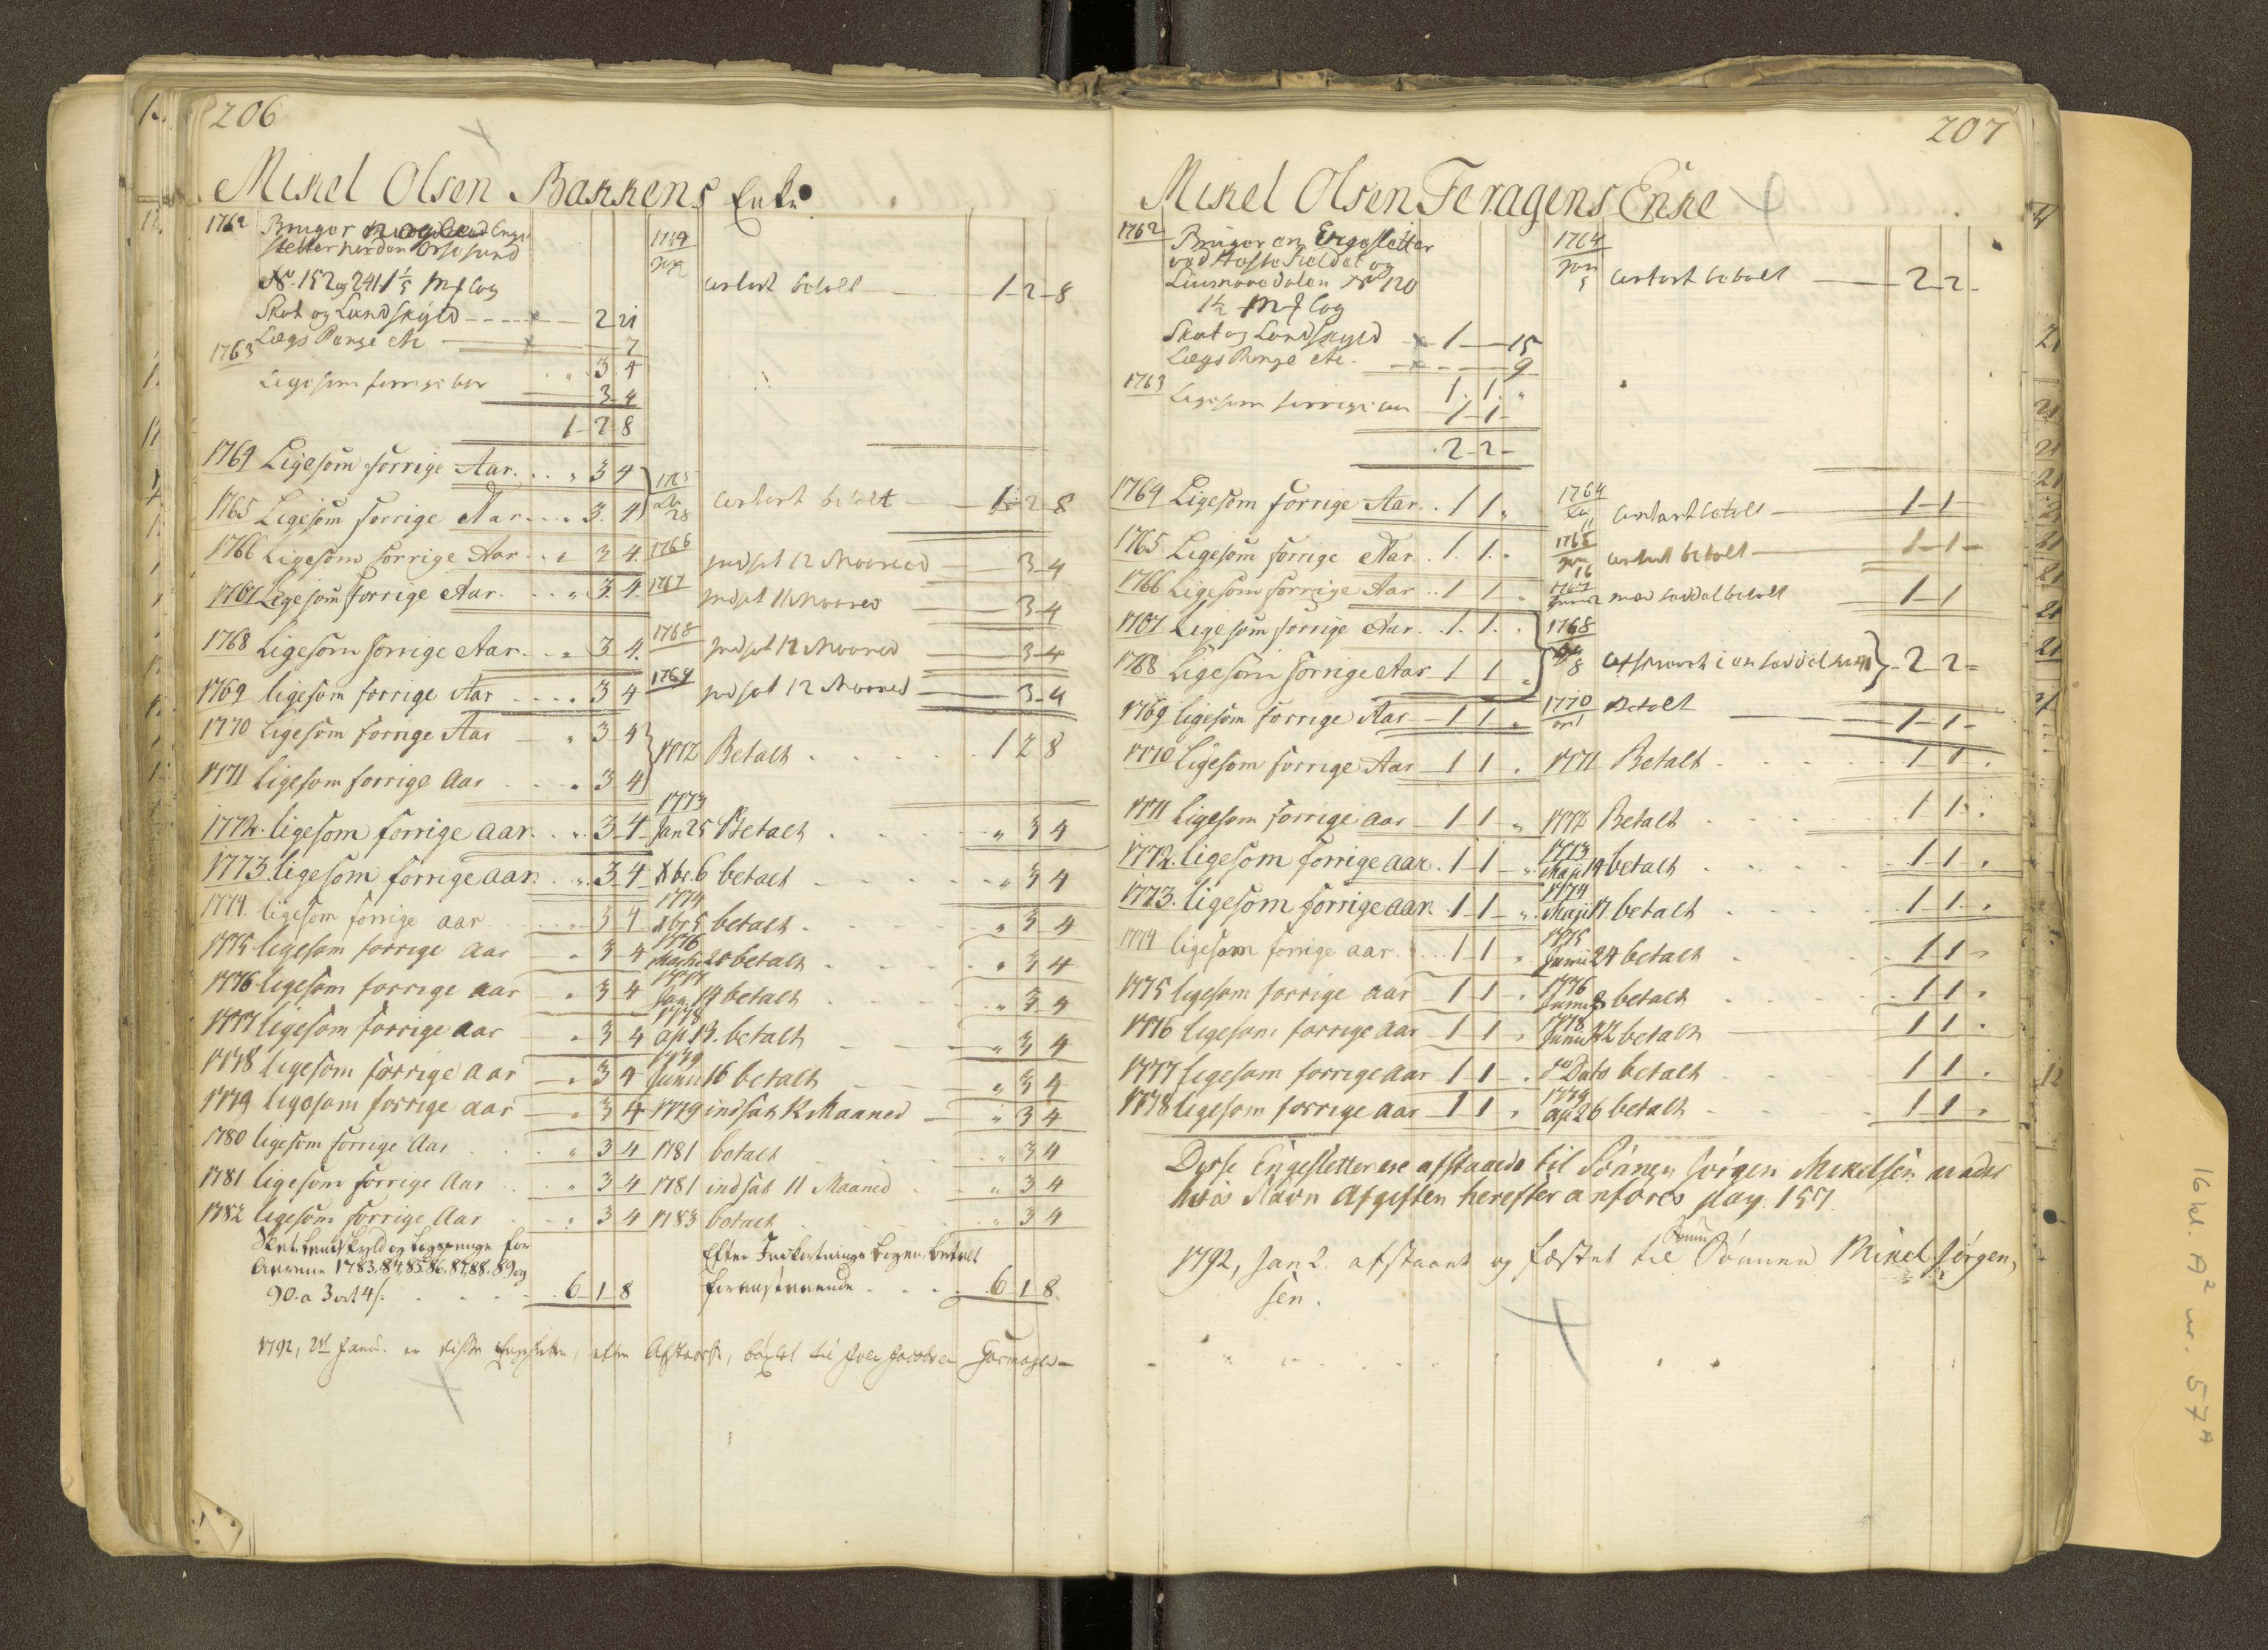 206
Mikel Olsen Bakkens Enke
1762 Bruger Enge
sletter norden Orsesund
No. 152 og 241 1 1/5 M f Log
Skat og Landskyld 2 21
Lægs Penge etc 7
3 4
1763 Ligesom forrige aar 3 4
1 2 8
1764 Ligesom forrige Aar 3 4
1765 Ligesom forrige Aar 3 4
1766 Ligesom forrige Aar 3 4
1767 Ligesom forrige Aar 3 4
1768 Ligesom forrige Aar 3 4
1769 ligesom forrige Aar 3 4
1770 ligesom forrige Aar 3 4
1771 ligesom forrige Aar 3 4
1772 ligesom forrige aar 3 4
1773 ligesom forrige aar 3 4
1774 ligesom forrige aar 3 4
1775 ligesom forrige aar 3 4
1776 ligesom forrige aar 3 4
1777 ligesom forrige aar 3 4
1778 ligesom forrige aar 3 4
1779 ligesom forrige aar 3 4
1780 ligesom forrige Aar 3 4
1781 ligesom forrige Aar 3 4
1782 ligesom forrige Aar 3 4
Skat, Landskyld og Lægspenge for
Aarene 1783, 84, 85, 86, 87, 88, 89 og
90 a 3 ort 4 s. 6 1 8
1764
betalt 1 2 8
1765
28 betalt 1 2 8
1766 indsat 12 Maaned 3 4
1767 indsat 11 Maaned 3 4
1768 indsat 11 Maaned 3 4
1769 indsat 12 Maaned 3 4
1772 Betalt 1 2 8
1773
Jan 25 Betalt 3 4
Xbr. 6 betalt 3 4
1774
Xbr 5 betalt 3 4
1776
Martii 20 betalt 3 4
1777
Jan. 14 betalt 3 4
1778
Ap. 13. betalt 3 4
1779
Junii 16 betalt 3 4
1779 indsat 12 Maaned 3 4
1781 betalt 3 4
1781 indsat 11 Maaned 3 4
1783 betalt 3 4
Efter Indkortnings Bogen betalt
foranstaaende 6 1 8
1792, 2d Janu. er disse Engesletter, efter Afstaaelse, bøxlet til Iver Jacobsen
207
Mikel Olsen Feragens Enke
1762 Bruger en Engesletter
ved Haste Fieldet og
No 120
1 1/2 M f Log
Skat og Landskyld 1 15
Lægs Penge etc. 9
1 1
1763 Ligesom forrige aar 1 1
2 2
1764 Ligesom forrige Aar 1 1
1765 Ligesom forrige Aar 1 1
1766 Ligesom forrige Aar 1 1
1767 Ligesom forrige Aar 1 1
1768 Ligesom forrige Aar 1 1
1769 ligesom forrige Aar 1 1
1770 ligesom forrige Aar 1 1
1771 ligesom forrige aar 1 1
1772 ligesom forrige aar 1 1
1773 ligesom forrige aar 1 1
1774 ligesom forrige aar 1 1
1775 ligesom forrige aar 1 1
1776 ligesom forrige aar 1 1
1777 ligesom forrige aar 1 1
1778 ligesom forrige aar 1 1
1764
Jan
5 betalt 2 2
1764
11 betalt 1 1
1765
16 betalt 1 1
1767
med Seddel betalt 1 1
1768
8 i en Seddel 2 2
1770 Betalt 1 1
1771 Betalt 1 1
1772 Betalt 1 1
1773
Maji 14 betalt 1 1
1774
Maji 17. betalt 1 1
1775
Junii 24 betalt 1 1
1776
Junii 8 betalt 1 1
1778
Junii 12 betalt 1 1
do Dato betalt 1 1
1779
Ap. 26 betalt 1 1
Disse Engesletter ere afstaaede til Sönnen Jörgen Mikelsen under
hvis Navn Afgiften herefter anföres pag. 157.
1792, Jan 2. afstaaet og fæstet til Sönnen Mikel Jörgen-
sen.
16 kl. A2 nr. 57 A